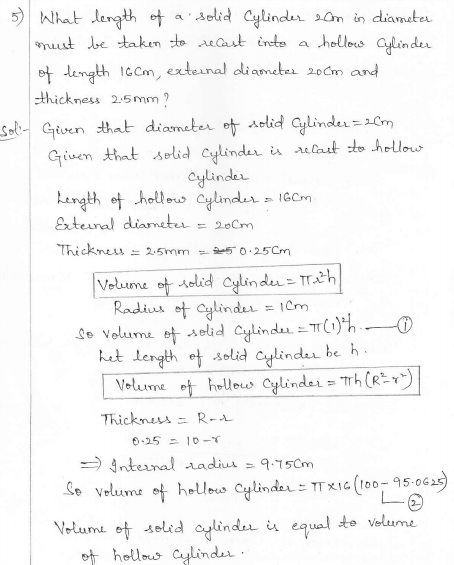 5) What length of a solid Cylinder 2Cm in diameter
must be taken to recast into a hollow Cylinder
of length 16Cm, external diameter 20Cm and
thickness 2.5mm?
Sol:- Given that diameter of solid Cylinder = 2Cm
Given that solid Cylinder is recast to hollow
Cylinder
Length of hollow Cylinder = 16Cm
External diameter = 20Cm
Thickness = 2.5mm = 0.25Cm
Volume of solid Cylinder = πr²h
Radius of Cylinder = 1Cm
So volume of solid Cylinder = π(1)²h. — ①
Let length of solid Cylinder be h.
Volume of hollow Cylinder = πh(R²-r²)
Thickness = R-r
0.25 = 10-r
⇒ Internal radius = 9.75Cm
So volume of hollow Cylinder = π×16(100-95.0625)
②
Volume of solid cylinder is equal to volume
of hollow Cylinder.